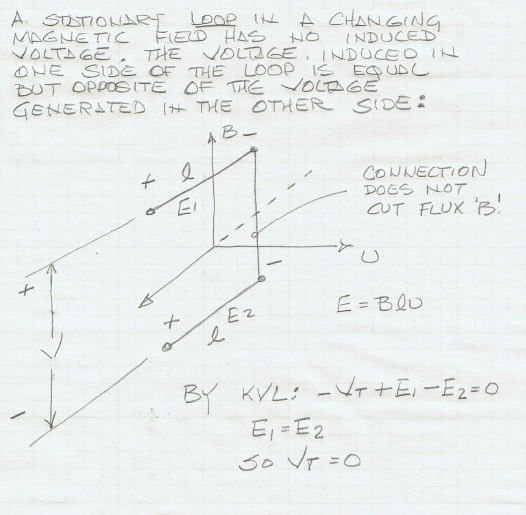 A. STATIONARY LOOP IN A CHANGING
MAGNETIC FIELD HAS NO INDUCED
VOLTAGE. THE VOLTAGE. INDUCED IN
ONE SIDE OF THE LOOP IS EQUAL
BUT OPPOSITE OF THE VOLTAGE
GENERATED IN THE OTHER SIDE:
B -
+ l
E1
CONNECTION
DOES NOT
CUT FLUX 'B'.
U
+
-
+ E2
l
E = BlU
V
-
BY KVL: -VT + E1 - E2 = 0
E1 = E2
SO VT = 0